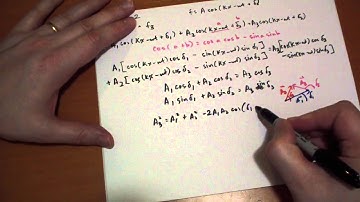 f = A cos(kx - ωt + δ)
cos(kx - ωt + δ₁) + A₂ cos(kx - ωt + δ₂) = A₃ cos(kx - ωt + δ₃)
cos(a+b) = cos a cos b - sin a sin b
A₁[cos(kx - ωt) cos δ₁ - sin(kx - ωt) sin δ₁] = A₃[cos(kx - ωt) cos δ₃
+ A₂[cos(kx - ωt) cos δ₂ - sin(kx - ωt) sin δ₂] - sin(kx - ωt) sin δ₃]
A₁ cos δ₁ + A₂ cos δ₂ = A₃ cos δ₃
A₁ sin δ₁ + A₂ sin δ₂ = A₃ sin δ₃
A₃² = A₁² + A₂² - 2A₁A₂ cos(δ₁